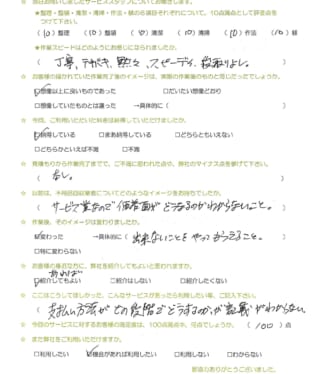 ☆ 当日お伺いしましたサービススタッフについてお聞きします。
・整理・整頓・清潔・清掃・作法・躾の6項目それぞれについて、10点満点として評定点をつけて下さい。
(10)整理 (10)整頓 (10)清潔 (10)清掃 (10)作法 (10)躾
＊作業スピードはどのようにお感じになられましたか。
丁寧、てきぱき、黙々、スピーディ、段取りよし。
☆ お客様の描けていた作業完了後のイメージは、実際の作業後のものと同じだったでしょうか。
☑想像以上に良いものであった □だいたい想像どおり
□想像していたものとは違った →具体的に( )
☆ 今回、ご利用いただいた料金は納得していただけましたか。
☑納得している □まあ納得している □どちらともいえない
□どちらかといえば不満 □不満
☆ 見積もりから作業完了までで、ご不満に思われた点や、弊社のマイナス点を挙げて下さい。
なし。
☆ 以前は、不用品回収業者についてどのようなイメージをお持ちでしたか。
サービス業なので価格面がどうなるのかわからないこと。
☆ 作業後、そのイメージは変わりましたか。
☑変わった →具体的に( 出来ないことをやってもらえること。 )
□特に変わらない
☆ お客様の身近な方に、弊社を紹介してもよいと思われますか。
あれば
☑紹介してもよい □紹介はしない □紹介したくない
☆ ここはこうしてほしかった、こんなサービスがあったら利用したい等、ご記入下さい。
支払い方法がどの段階でどうするのかが認識がわからない
☆ 今回のサービスに対するお客様の満足度は、100点満点中、何点でしょうか。 (100)点
☆ また弊社をご利用いただけますか。
□利用したい ☑機会があれば利用したい □利用しない □わからない
ご協力ありがとうございました。